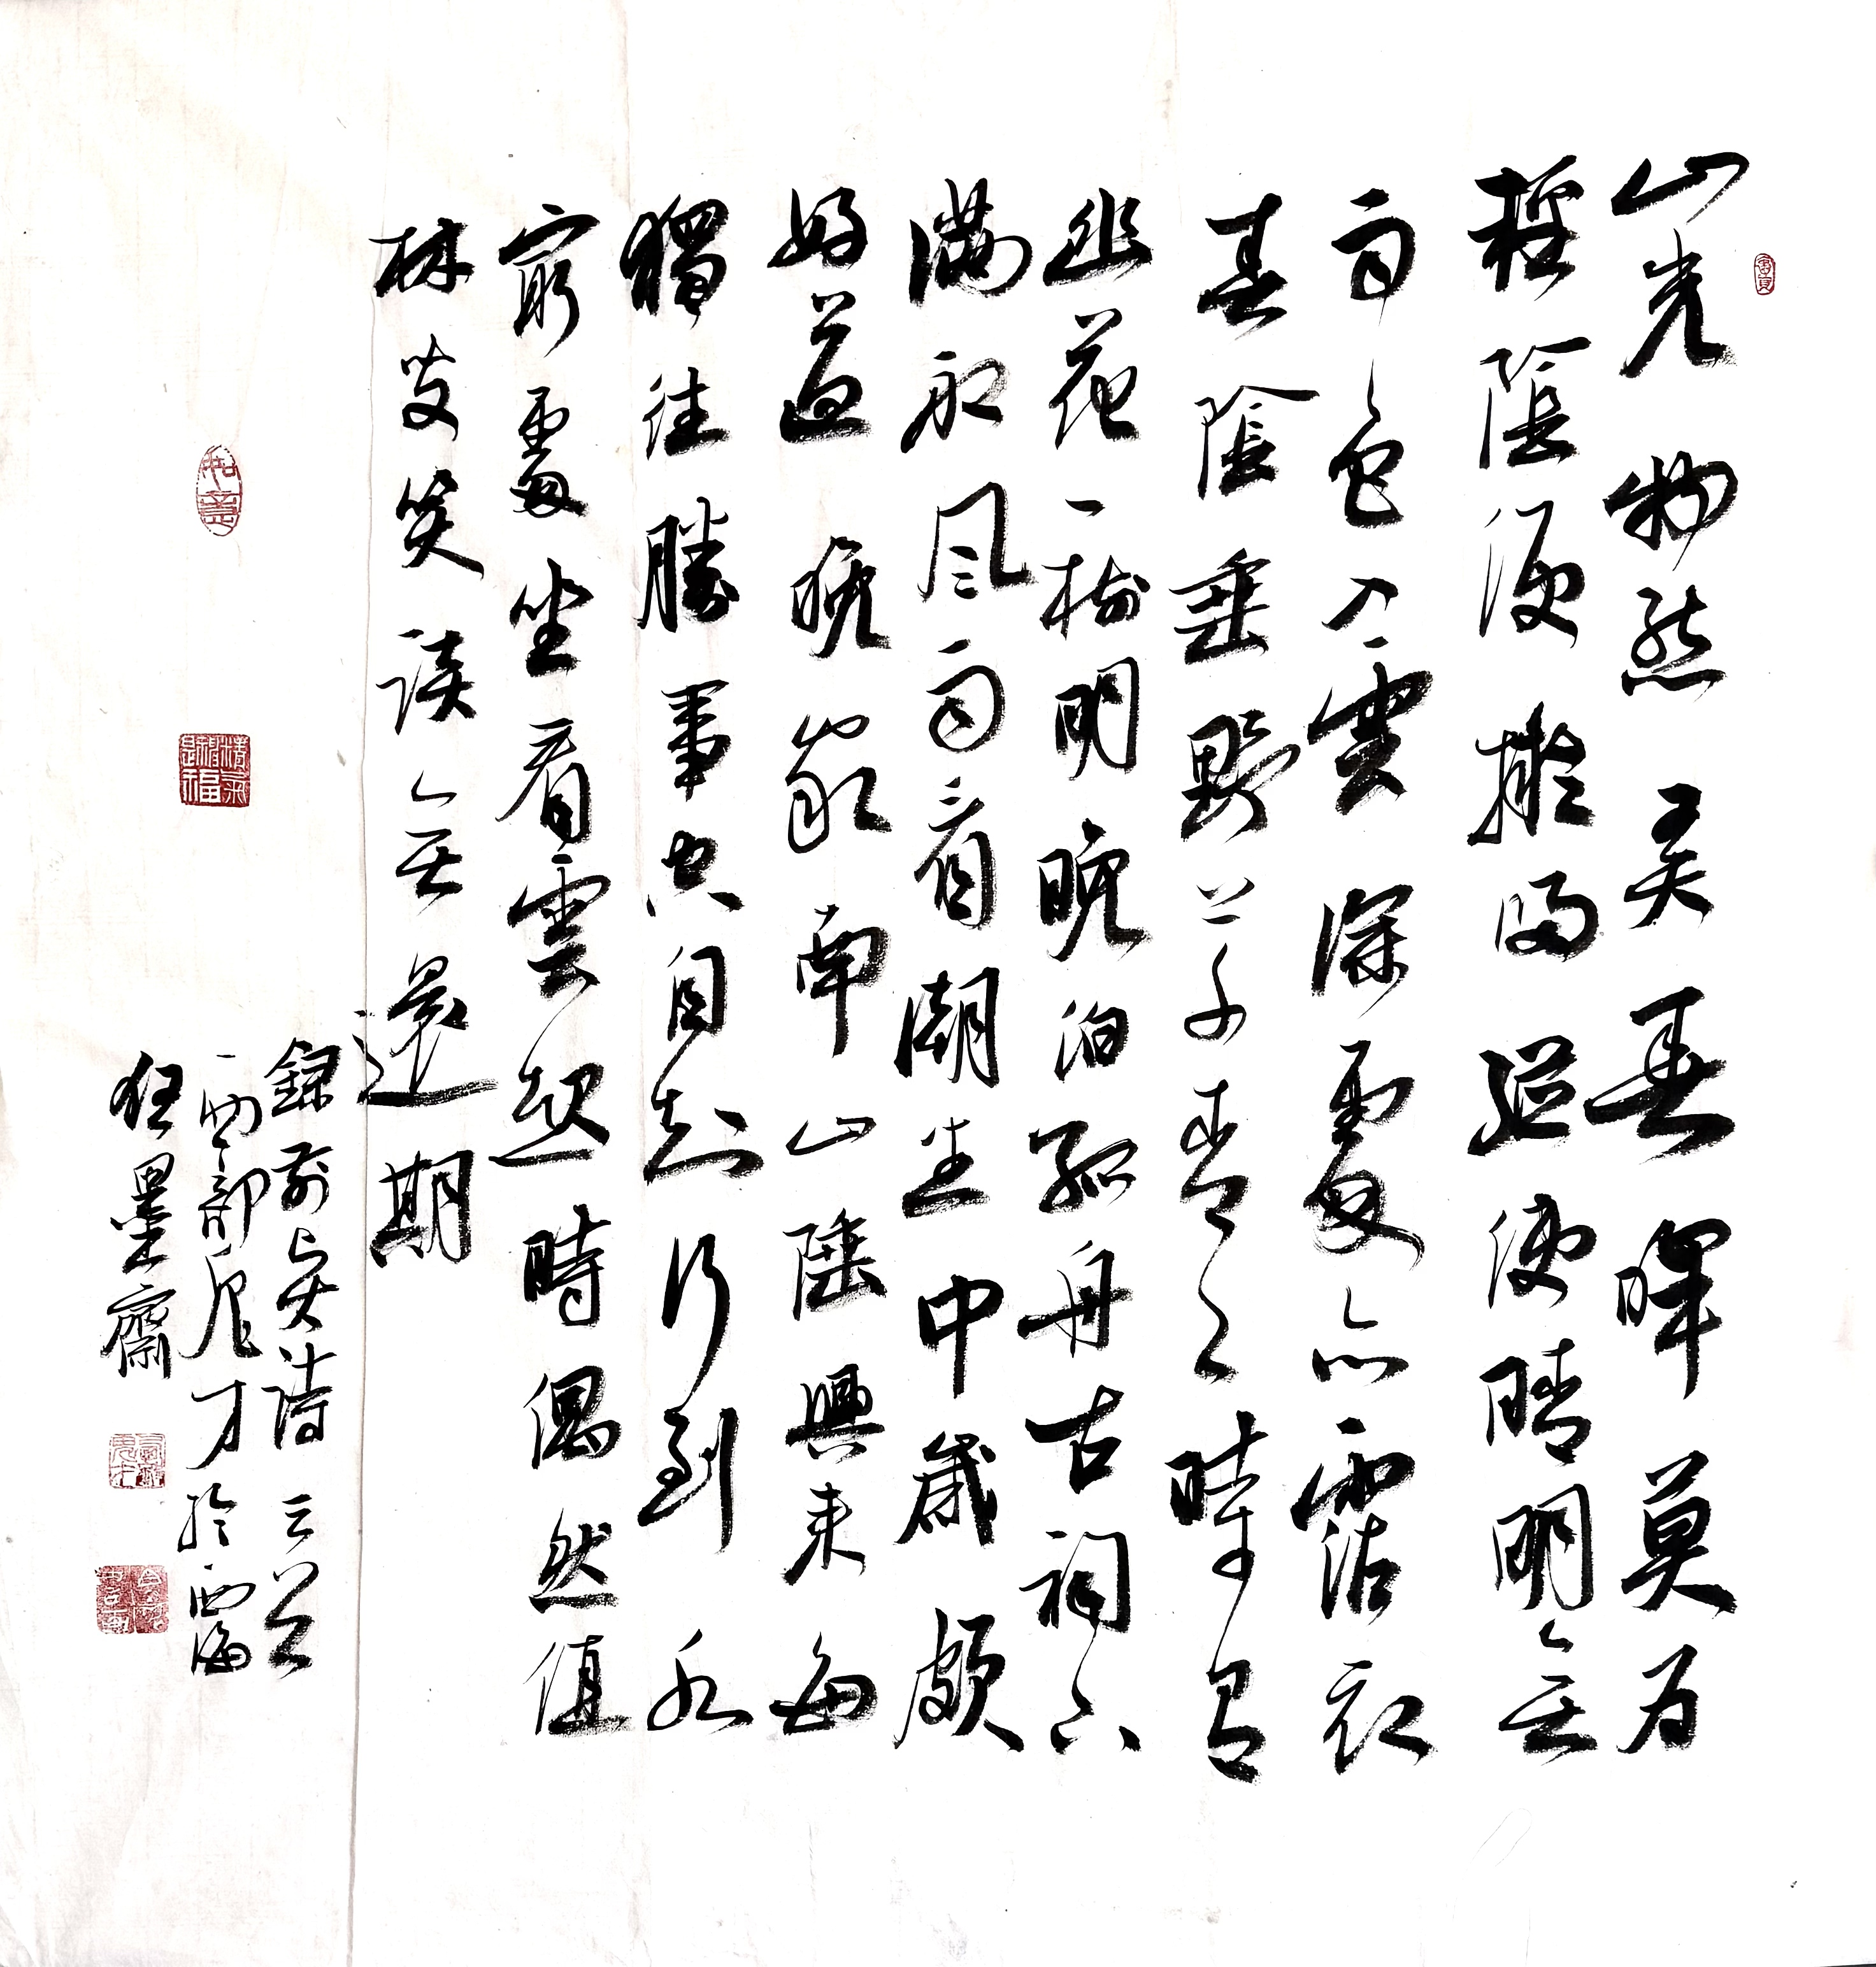 山光物態弄春暉莫为
輕陰便擬歸縱使晴明無
雨色入雲深處亦霑衣
春陰垂野草青々時有
幽花一樹明晚泊孤舟古祠下
滿川風雨看潮生中歲頗
好道晚家南山陲興來每
獨往勝事空自知行到水
窮處坐看雲起時偶然值
林叟笑談無還期
錄前賢詩三首
西部鬼才於西
狂墨齋
如意